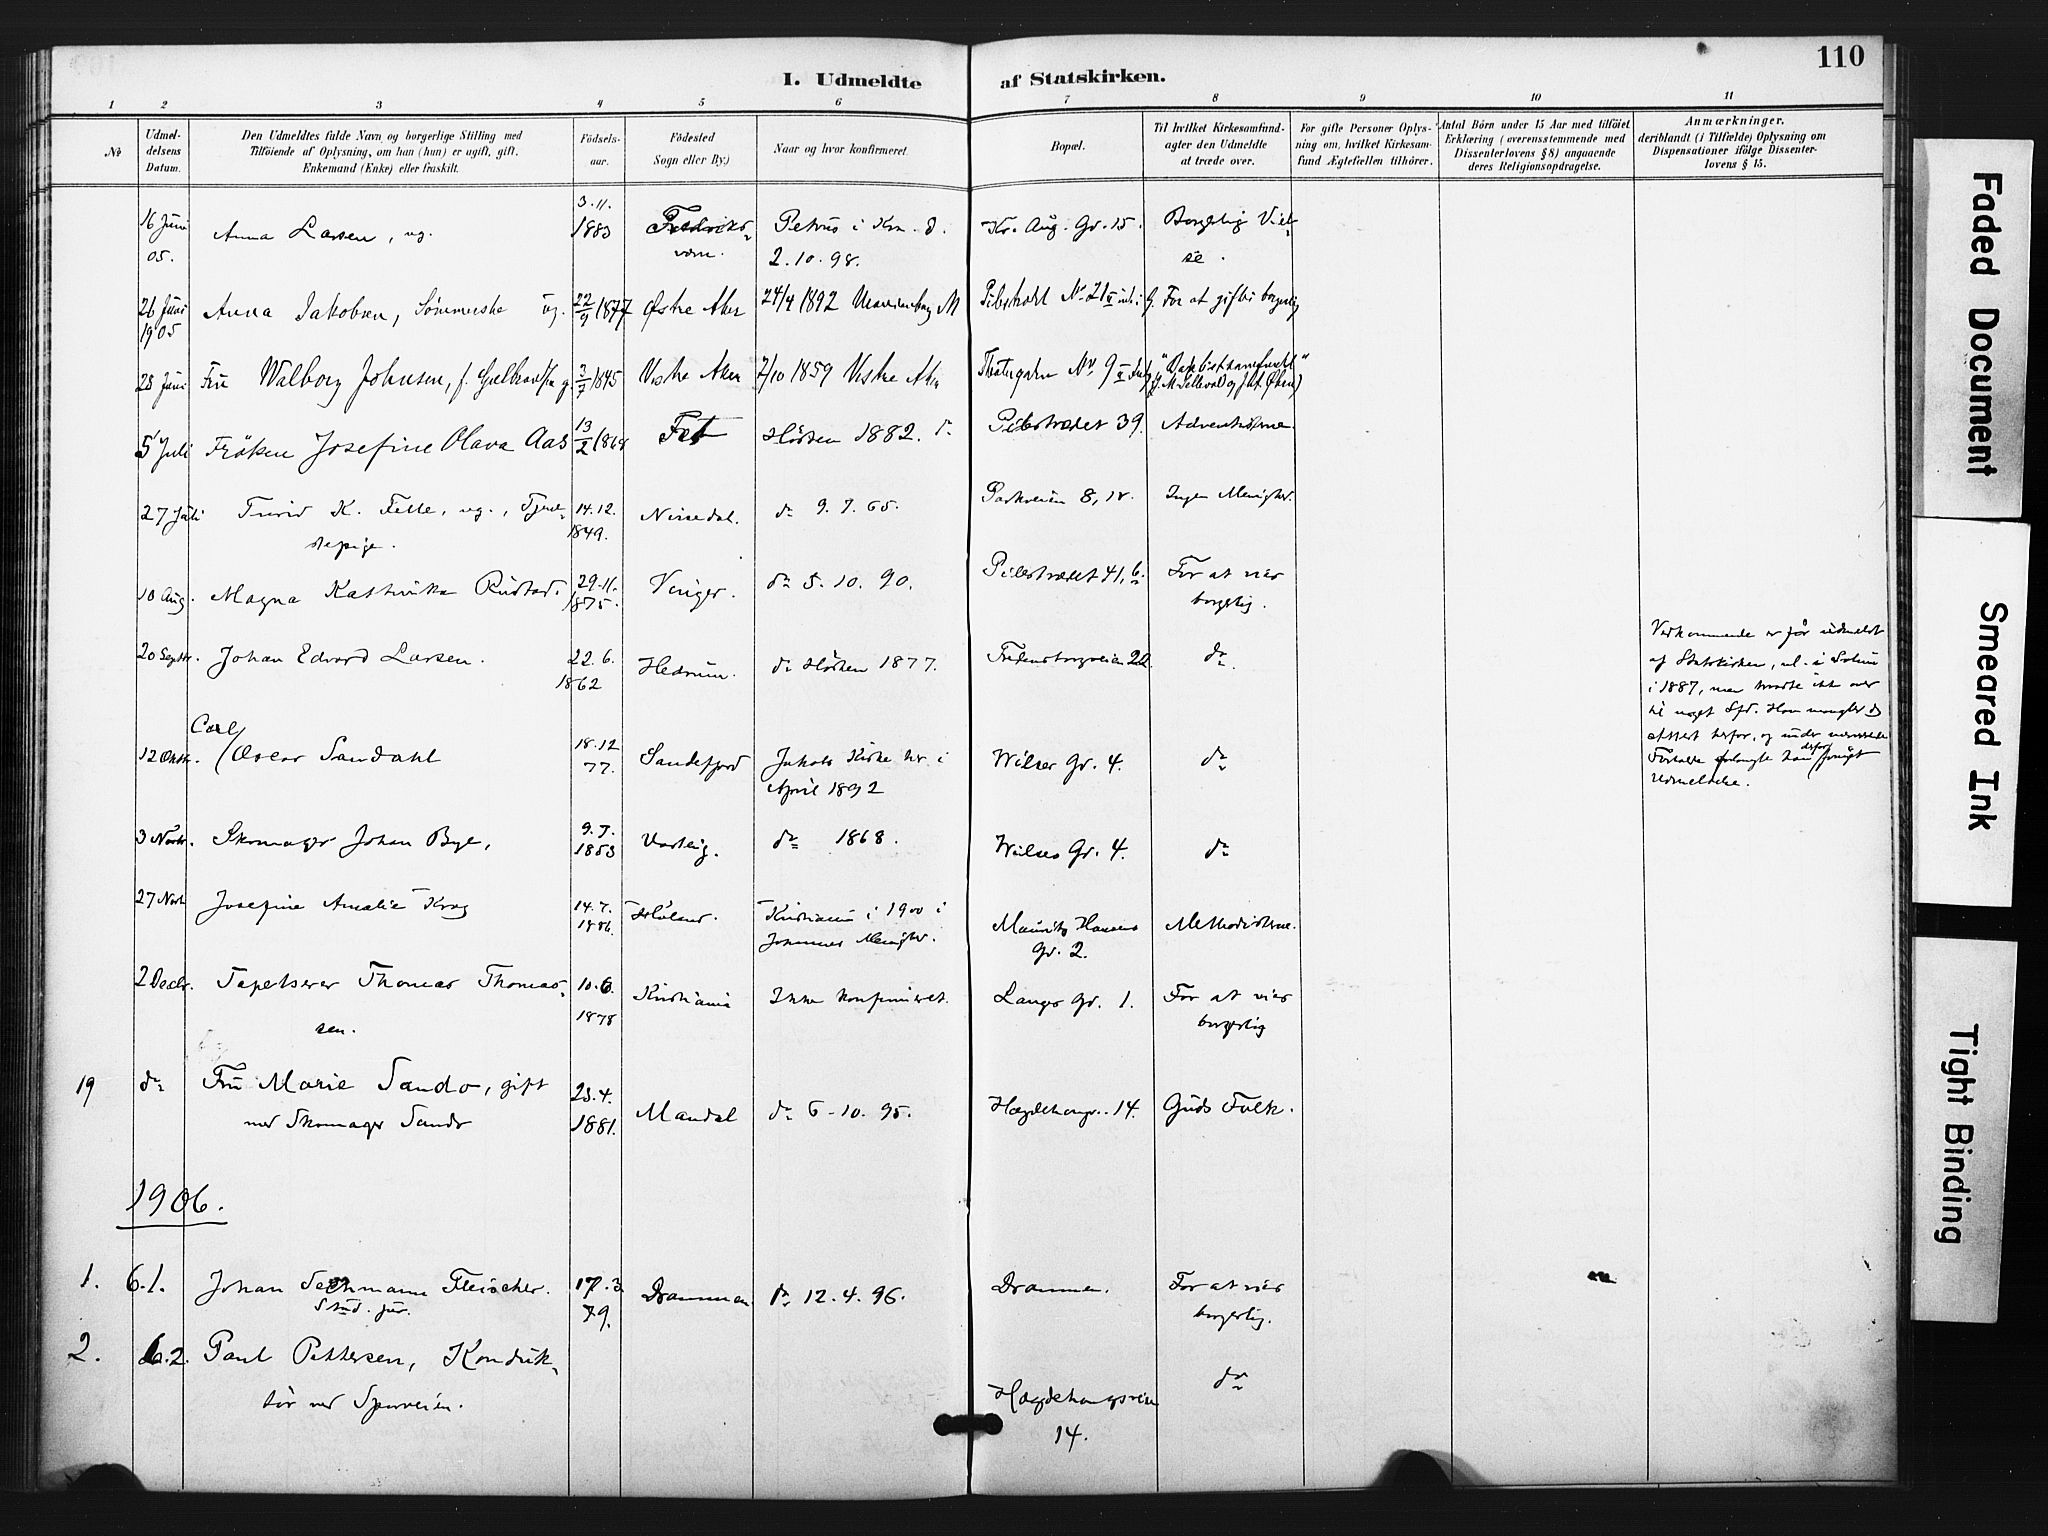 110
I. Udmeldte af Statskirken.
1 2 3 4 5 6 7 8 9 10 11
No
Udmel-
delsens
Datum.
Den Udmeldtes fulde Navn og borgerlige Stilling med
Tilföiende af Oplysning, om han (hun) er ugift, gift,
Enkemand (Enke) eller fraskilt.
Födsels-
aar.
Födested
Sogn eller By.)
Naar og hvor konfirmeret.
Bopæl.
Til hvilket Kirkesamfund-
agter den Udmeldte
at træde over.
For gifte Personer Oplys-
ning om, hvilket Kirkesam-
fund Ægtefællen tilhörer.
Antal Börn under 15 Aar med tilföiet
Erklæring (overensstemmende med
Dissenterlovens § 8) angaaende
deres Religionsopdragelse.
Anmærkninger,
deriblandt (i Tilfælde) Oplysning om
Dispensationer ifölge Dissenter-
lovens § 15.
16 Juni
05.
Anna Larsen, ug.
3.11.
1883
Fredriks-
værn.
Petrus i Krn. d.
2.10.98.
Kr. Aug. Gr. 15.
Borgelig Viel-
se.
26 Juni
1905
Anna Jakobsen, Sömmerske ug.
22/9 1877
Østre Aker
24/4 1892
Pilestrædet No 21 II
For at giftes borgerlig
28 Juni
Fru Walborg Johnsen, f.
3/7 1845
Vestre Aker
2/10 1859 Vestre Aker
Thatergaden No 9
5 Juli
Fröken Josefine Olava Aas
13/2 1868
Fet
Hösten 1882.
Pilestrædet 39.
Adventisterne
27 Juli
Turid K. Felle, ug., Tjene-
stepige.
14.12.
1849.
Nissedal.
do 9.7.65.
Parkveien 8, IV.
Ingen Menighet.
10 Aug.
Magna Kathinka Rustad.
29.11.
1875.
Vinger.
do 5.10.90.
Pilestrædet 41, 6.
For at vies
borgerlig.
20 Septbr.
Johan Edvard Larsen.
22.6.
1862
Hedrum.
do Hösten 1877.
Fredensborgveien 22.
do
Vedkommende er för udmeldt
af Statskirken, nl. i Solum
i 1887, men traadte ikke over
til noget Sfd. Han mangler
attest herfor, og under nærværende
Forholde forlangte han derfor fornyet
udmeldelse.
12 Oktbr.
Carl
Oscar Sandahl
18.12
77.
Sandefjord
Jakobs Kirke her i
April 1892
Wilses Gr. 4.
do
3 Novbr.
Skomager Johan Bye,
9.7.
1853
Varteig.
do 1868.
Wilses Gr. 4.
do
27 Novbr
Josefine Amalie Krog
14.7.
1886.
Höland.
Kristiania i 1900 i
Johannes Menighet.
Mauritz Hansens
Gr. 2.
Methodisterne.
2 Decbr.
Tapetserer Thomas Thomas-
sen.
10.6.
1878
Kristiania
Ikke konfirmeret.
Langes Gr. 1.
For at vies
borgerlig
19
do
Fru Marie Sando, gift
med Skomager Sando
23.4.
1881.
Mandal
do 6-10.95.
Hægdehaugv. 14.
Guds Folk.
1906.
1.
6.1.
Johan Sechmann Fleischer.
Stud. jur.
17.3
79.
Drammen
do 12.4.96.
Drammen.
For at vies
borgerlig.
2.
6.2.
Paul Pettersen, Konduk-
tör ved Sporveien.
Hægdehaugsveien
14.
do
Faded Document
Smeared Ink
Tight Binding